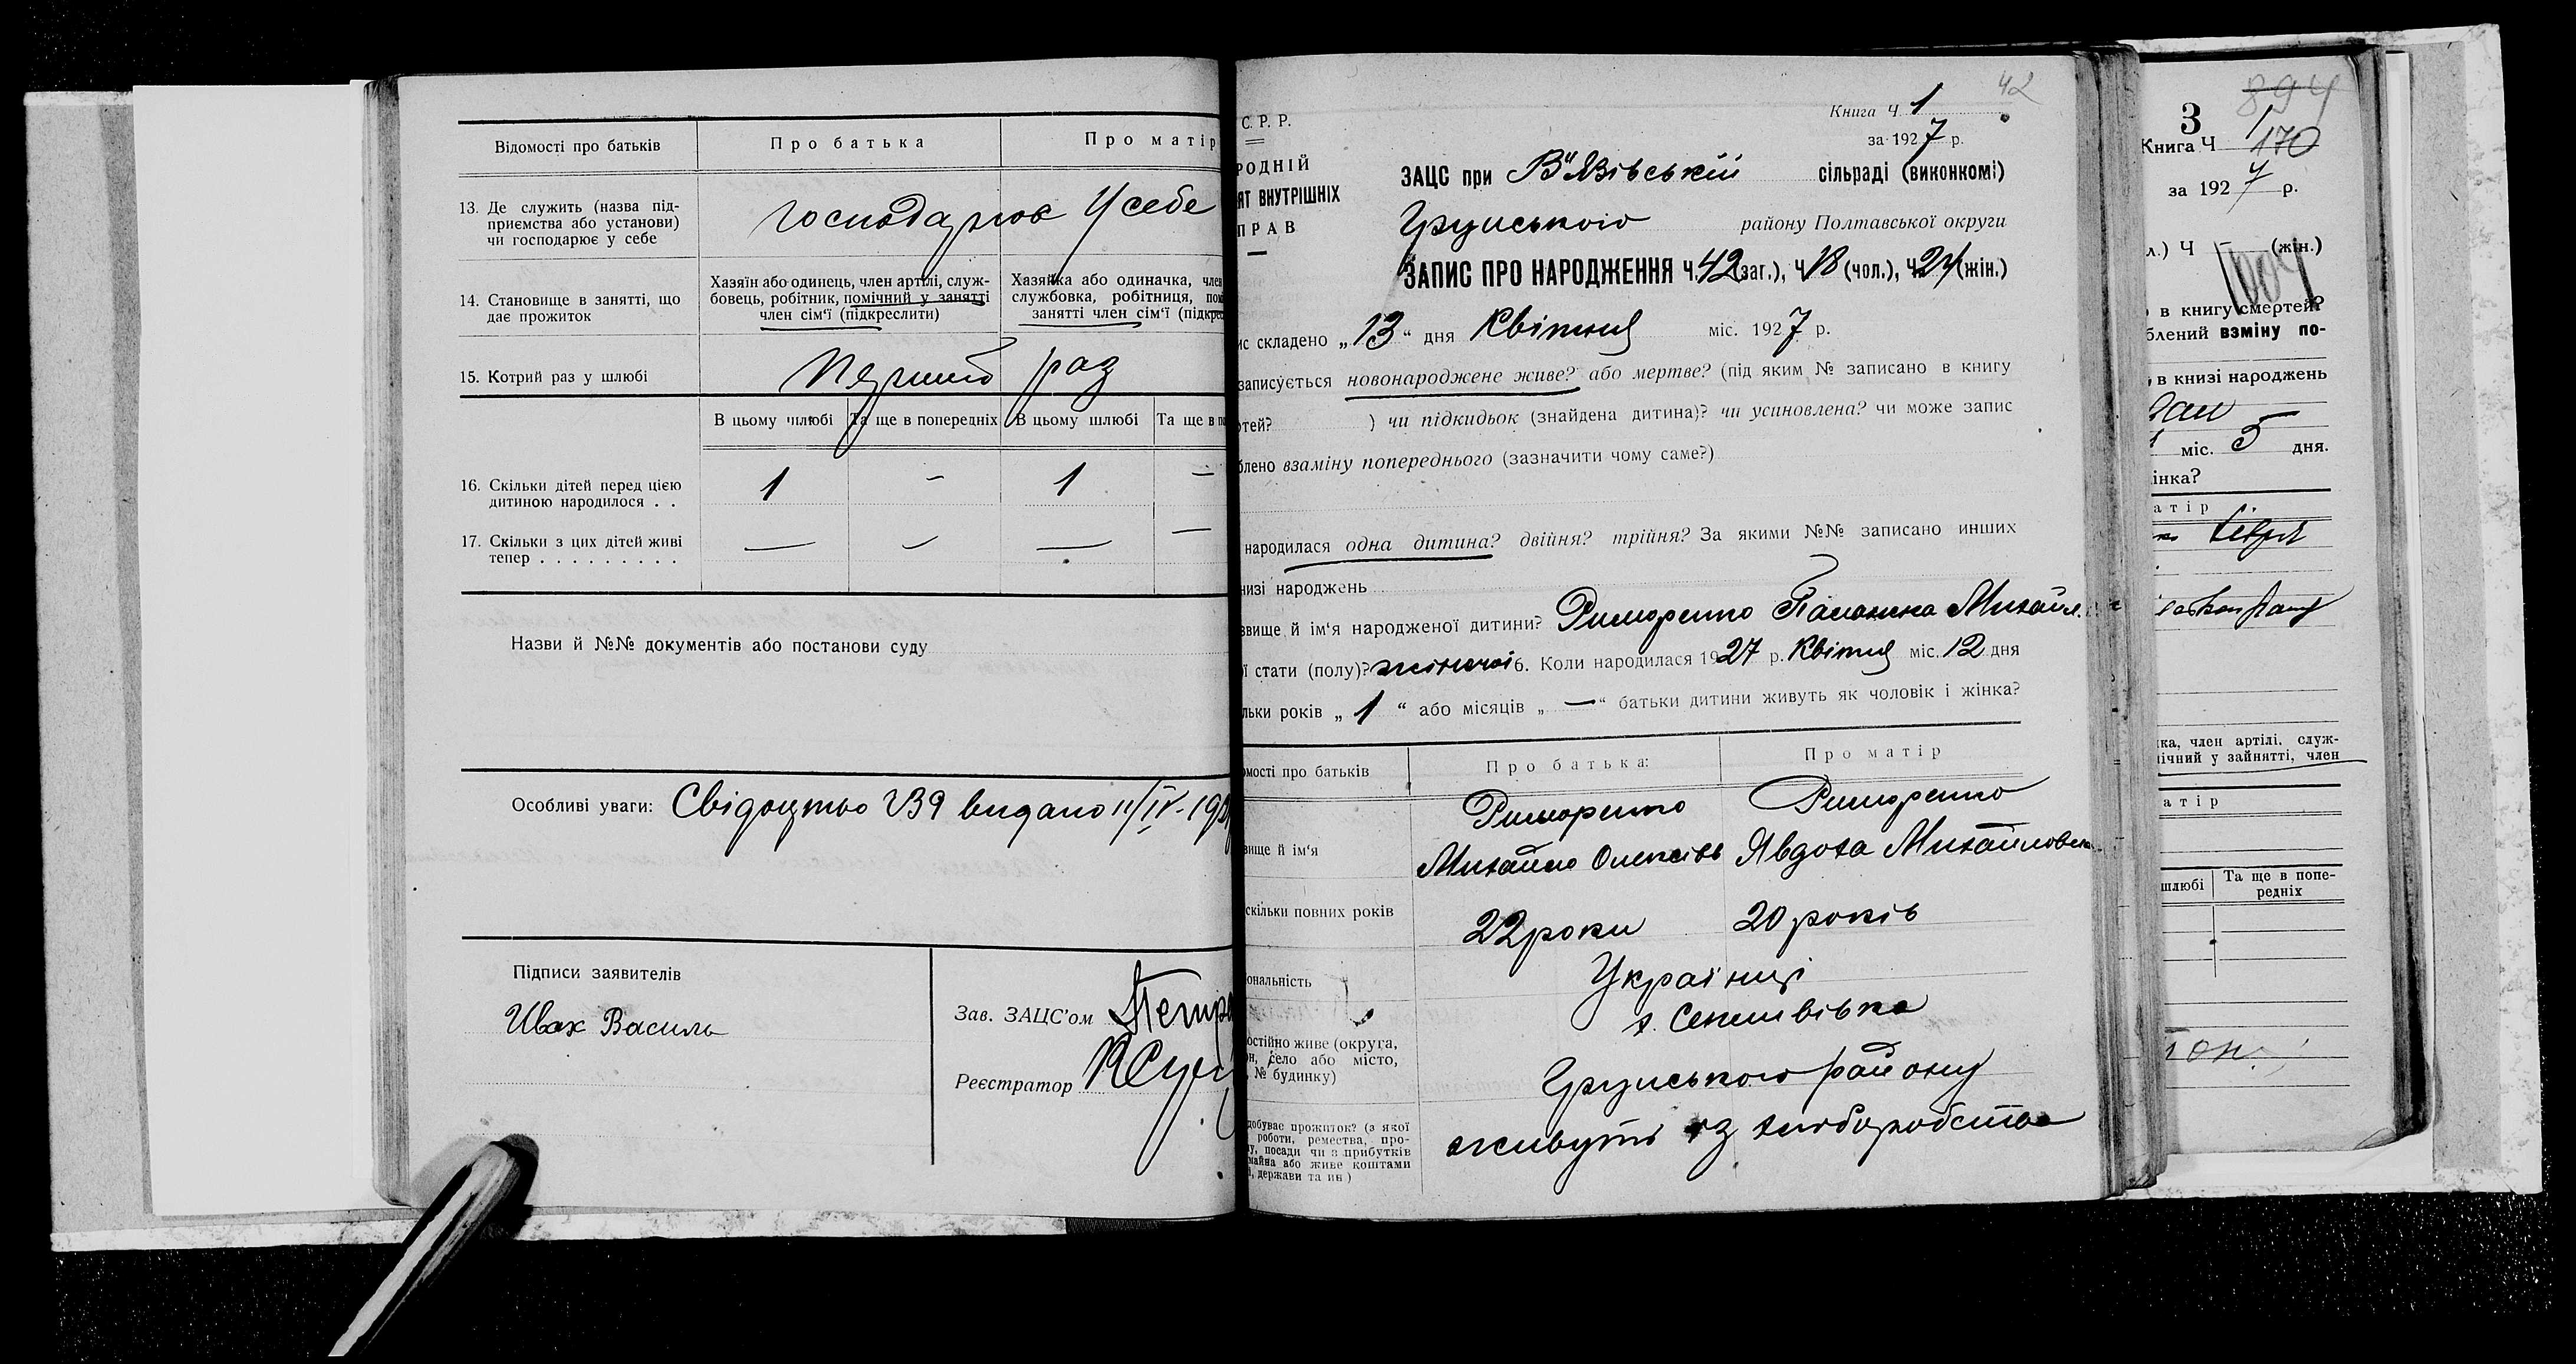 Відомості про батьків
Про батька
Про матір
13. Де служить (назва під-
приємства або установи)
чи господарює у себе
господарює У себе
14. Становище в занятті, що
дає прожиток
Хазяїн або одинець, член артілі, служ-
бовець, робітник, помічний у занятті
член сім'ї (підкреслити)
Хазяйка або одиначка, член
службовка, робітниця, пом
занятті член сім'ї (підкре
15. Котрий раз у шлюбі
Перший раз
В цьому шлюбі
Та ще в попередніх
В цьому шлюбі
Та ще в по
16. Скільки дітей перед цією
дитиною народилося . .
1 - 1 —
17. Скільки з цих дітей живі
тепер . . . . . . . . .
— — — —
Назви й №№ документів або постанови суду
Особливі уваги: Свідоцтво №39 видано 11/IV-192
Підписи заявителів
Ивах Василь
Зав. ЗАЦС'ом Петр
Реєстратор
42
С. Р. Р.
РОДНІЙ
ЯТ ВНУТРІШНІХ
ПРАВ
Книга Ч 1
за 1927 р.
ЗАЦС при В"язівській сільраді (виконкомі)
Грунського району Полтавської округи
ЗАПИС ПРО НАРОДЖЕННЯ Ч. 42 (заг.), Ч 18 (чол.), Ч. 24 (жін.)
ис складено „13“ дня Квітня міс. 1927 р.
записується новонароджене живе? або мертве? (під яким № записано в книгу
ртей? ) чи підкидьок (знайдена дитина)? чи усиновлена? чи може запис
блено взаміну попереднього (зазначити чому саме?)
народилася одна дитина? двійня? трійня? За якими №№ записано инших
низі народжень
звище й ім'я народженої дитини? Риморенко Палажка Михайл.
ї стати (полу)? жіночої 6. Коли народилася 1927 р. Квітня міс. 12 дня
льки років „ 1 “ або місяців „ — “ батьки дитини живуть як чоловік і жінка?
омості про батьків
Про батька:
Про матір
звище й ім'я
Риморенко
Михайло Олексієв
Риморенко
Явдоха Михайловна
скільки повних років
22 роки
20 років
ональність
Українці
остійно живе (округа,
н, село або місто,
, № будинку)
х. Сененвівка
Грунського району
добуває прожиток? (з якої
роботи, ремества, про-
у, посади чи з прибутків
майна або живе коштами
, держави та ин)
живуть із хліборобства
894
3
Книга Ч 1
170
за 1927 р.
л.) Ч - (жін.)
в книгу смертей?
блений взміну по-
в книзі народжень
міс. 5 дня.
інка?
атір
ка, член артілі, служ-
мічний у зайнятті, член
атір
шлюбі
Та ще в попе-
редніх